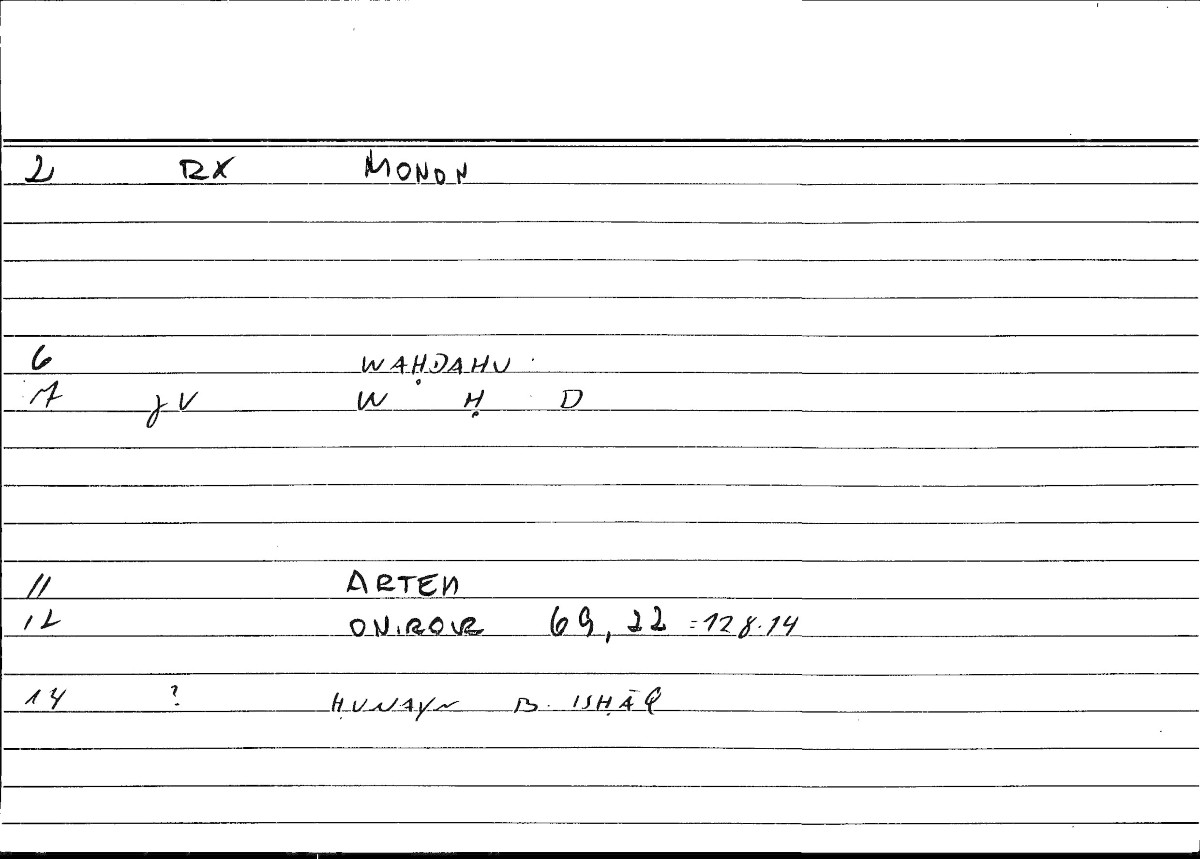 2 RX MONON
6 WAḤDAHU
7 jV W Ḥ D
11 ARTEM
12 ONIROCR 69, 22 = 128.14
14 ? ḤUNAYN B. ISḤĀQ